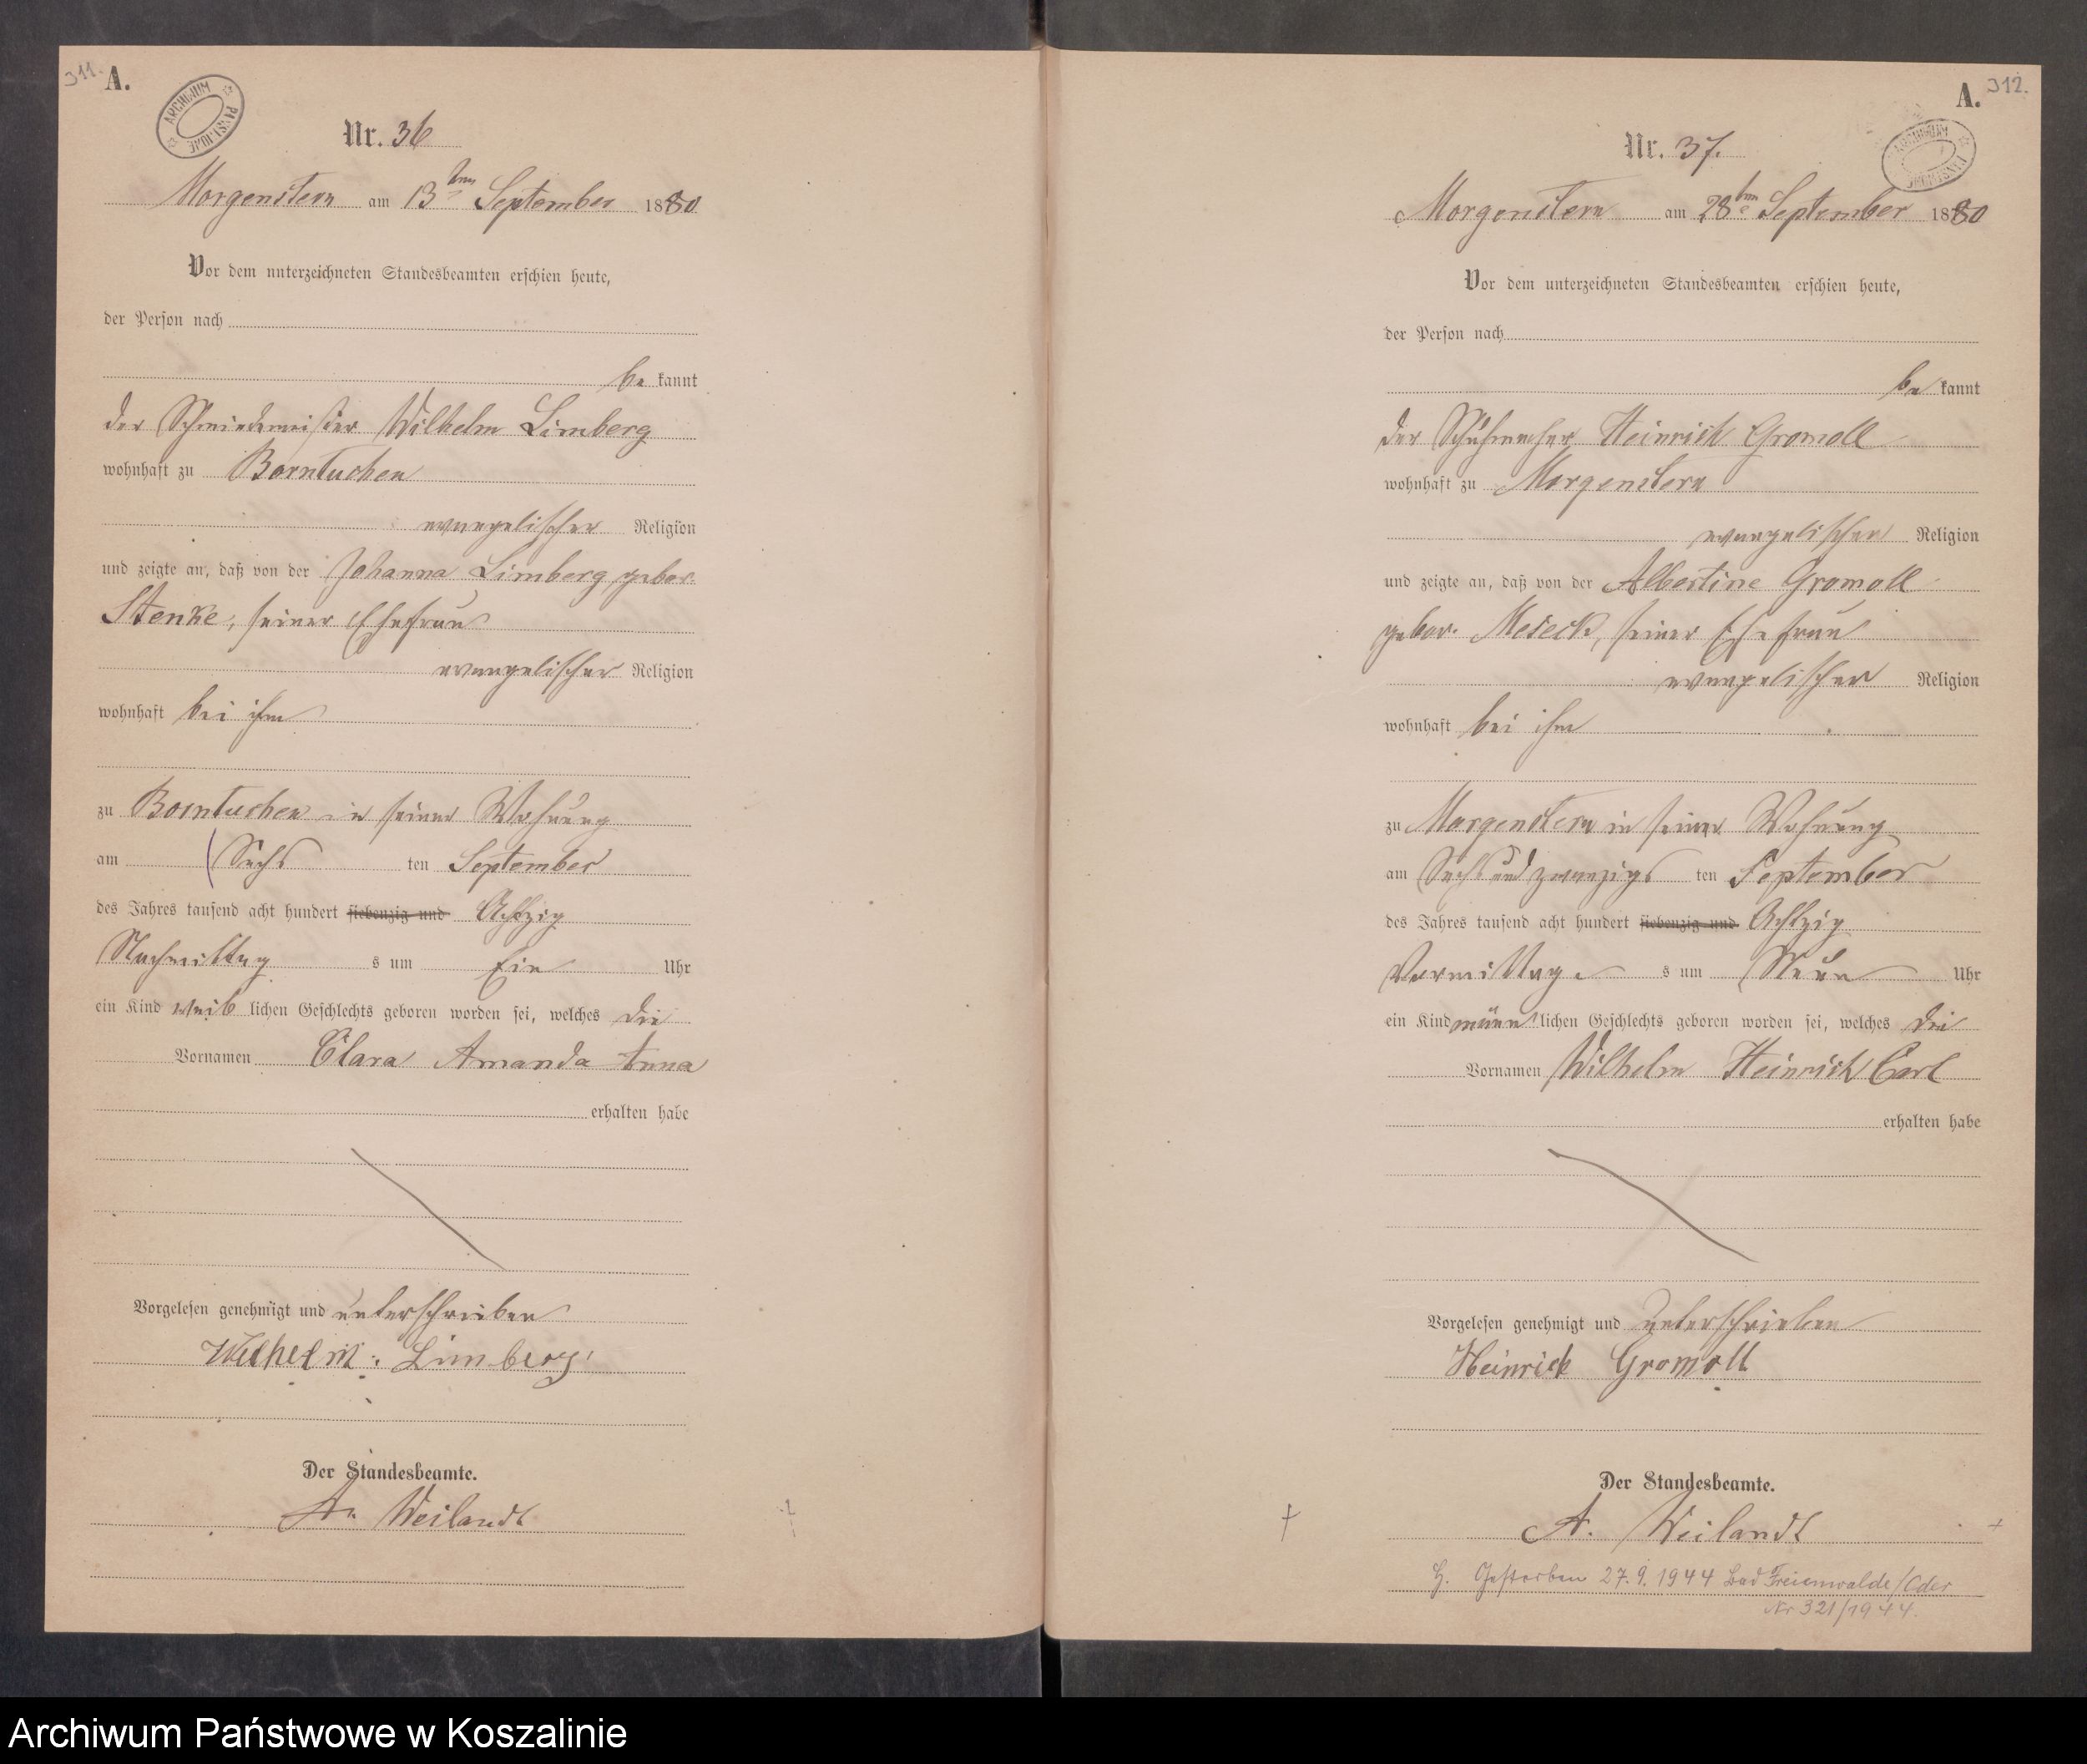 311.
A.
ARCHIWUM PAŃSTWOWE
Nr. 36
Morgenstern am 13ten September 1880
Vor dem unterzeichneten Standesbeamten erschien heute,
der Person nach
be kannt
der Schmiedemeister Wilhelm Limberg
wohnhaft zu Borntuchen
evangelischer Religion
und zeigte an, daß von der Johanna Limberg, gebor.
Stenke, seiner Ehefrau
evangelischer Religion
wohnhaft bei ihm
zu Borntuchen in seiner Wohnung
am Sechs ten September
des Jahres tausend acht hundert siebenzig und Achtzig
Nachmittag s um Ein Uhr
ein Kind weib lichen Geschlechts geboren worden sei, welches die
Vornamen Clara Amanda Anna
erhalten habe
Vorgelesen genehmigt und unterschrieben
Wilhelm Limberg
Der Standesbeamte.
A. Weilandt
A. 312.
ARCHIWUM PAŃSTWOWE
Nr. 37.
Morgenstern am 28ten September 1880
Vor dem unterzeichneten Standesbeamten erschien heute,
der Person nach
be kannt
der Schuhmacher Heinrich Gromoll
wohnhaft zu Morgenstern
evangelischer Religion
und zeigte an, daß von der Albertine Gromoll
gebor. Meseck, seiner Ehefrau
evangelischer Religion
wohnhaft bei ihm
zu Morgenstern in seiner Wohnung
am Sechs und zwanzigs ten September
des Jahres tausend acht hundert siebenzig und Achtzig
Vormittag s um Neun Uhr
ein Kind männ lichen Geschlechts geboren worden sei, welches die
Vornamen Wilhelm Heinrich Carl
erhalten habe
Vorgelesen genehmigt und unterschrieben
Heinrich Gromoll
Der Standesbeamte.
A. Weilandt
Gestorben 27.9.1944 Bad Freienwalde/Oder
Nr 321/1944.
Archiwum Państwowe w Koszalinie